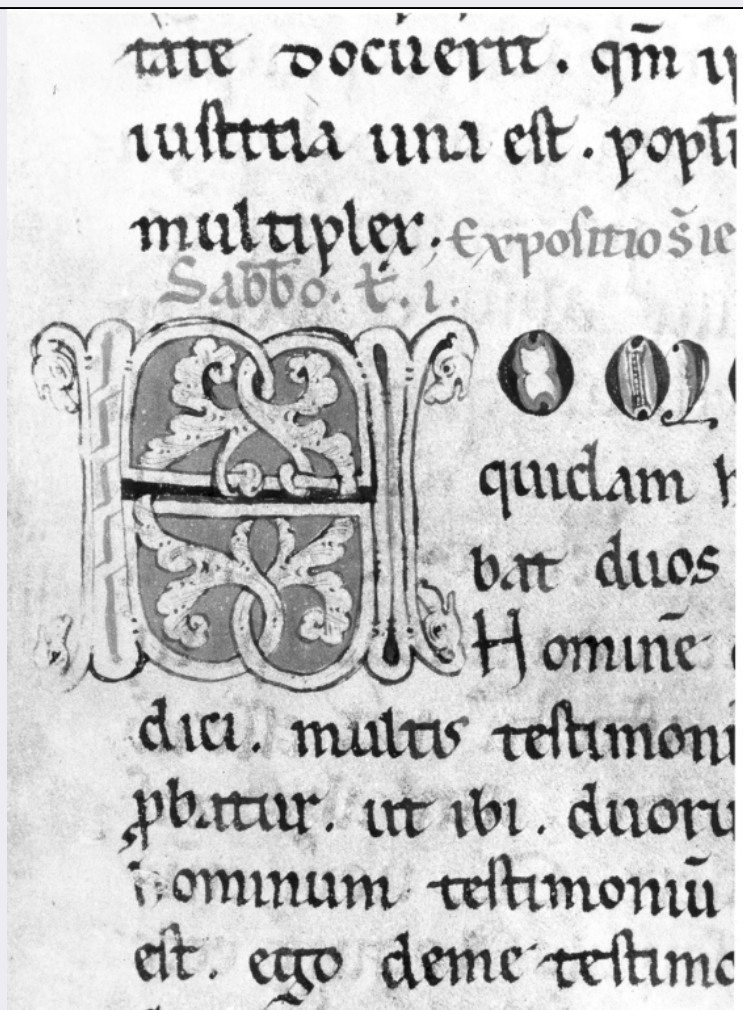 tate docuerit. qm̄
iustitia una est. popl̄
multiplex. Expositio s̄ ie
Sabb̄o. t̄. i.
HOMO
quidam h
bat duos
Hominē
dici. multis testimoni
ꝓbatur. ut ibi. duoru
hominum testimoniū
est. ego deme testimo